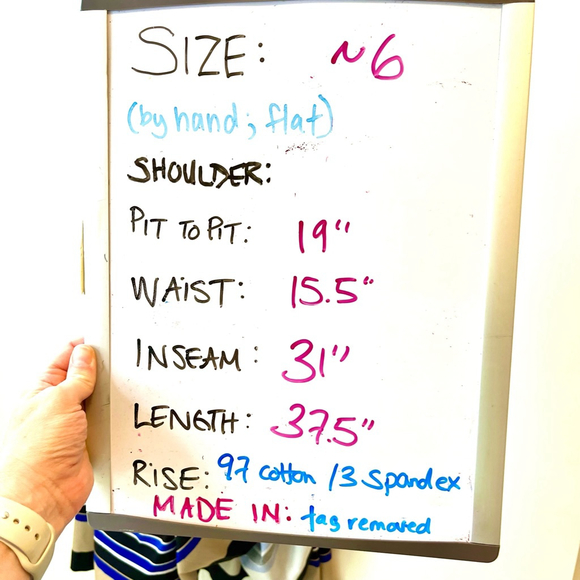 SIZE: ~6
(by hand; flat)
SHOULDER:
PIT TO PIT: 19"
WAIST: 15.5"
INSEAM: 31"
LENGTH: 37.5"
RISE: 97 cotton /3 spandex
MADE IN: tag removed